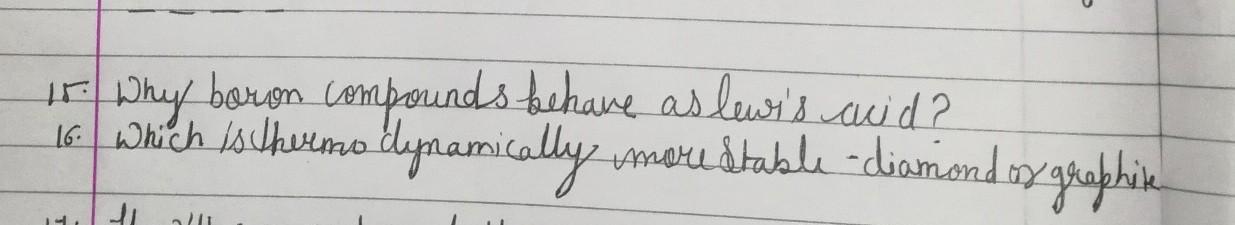 15. Why boron compounds behave as lewi's acid?
16. Which is thermo dynamically more stable - diamond or graphite